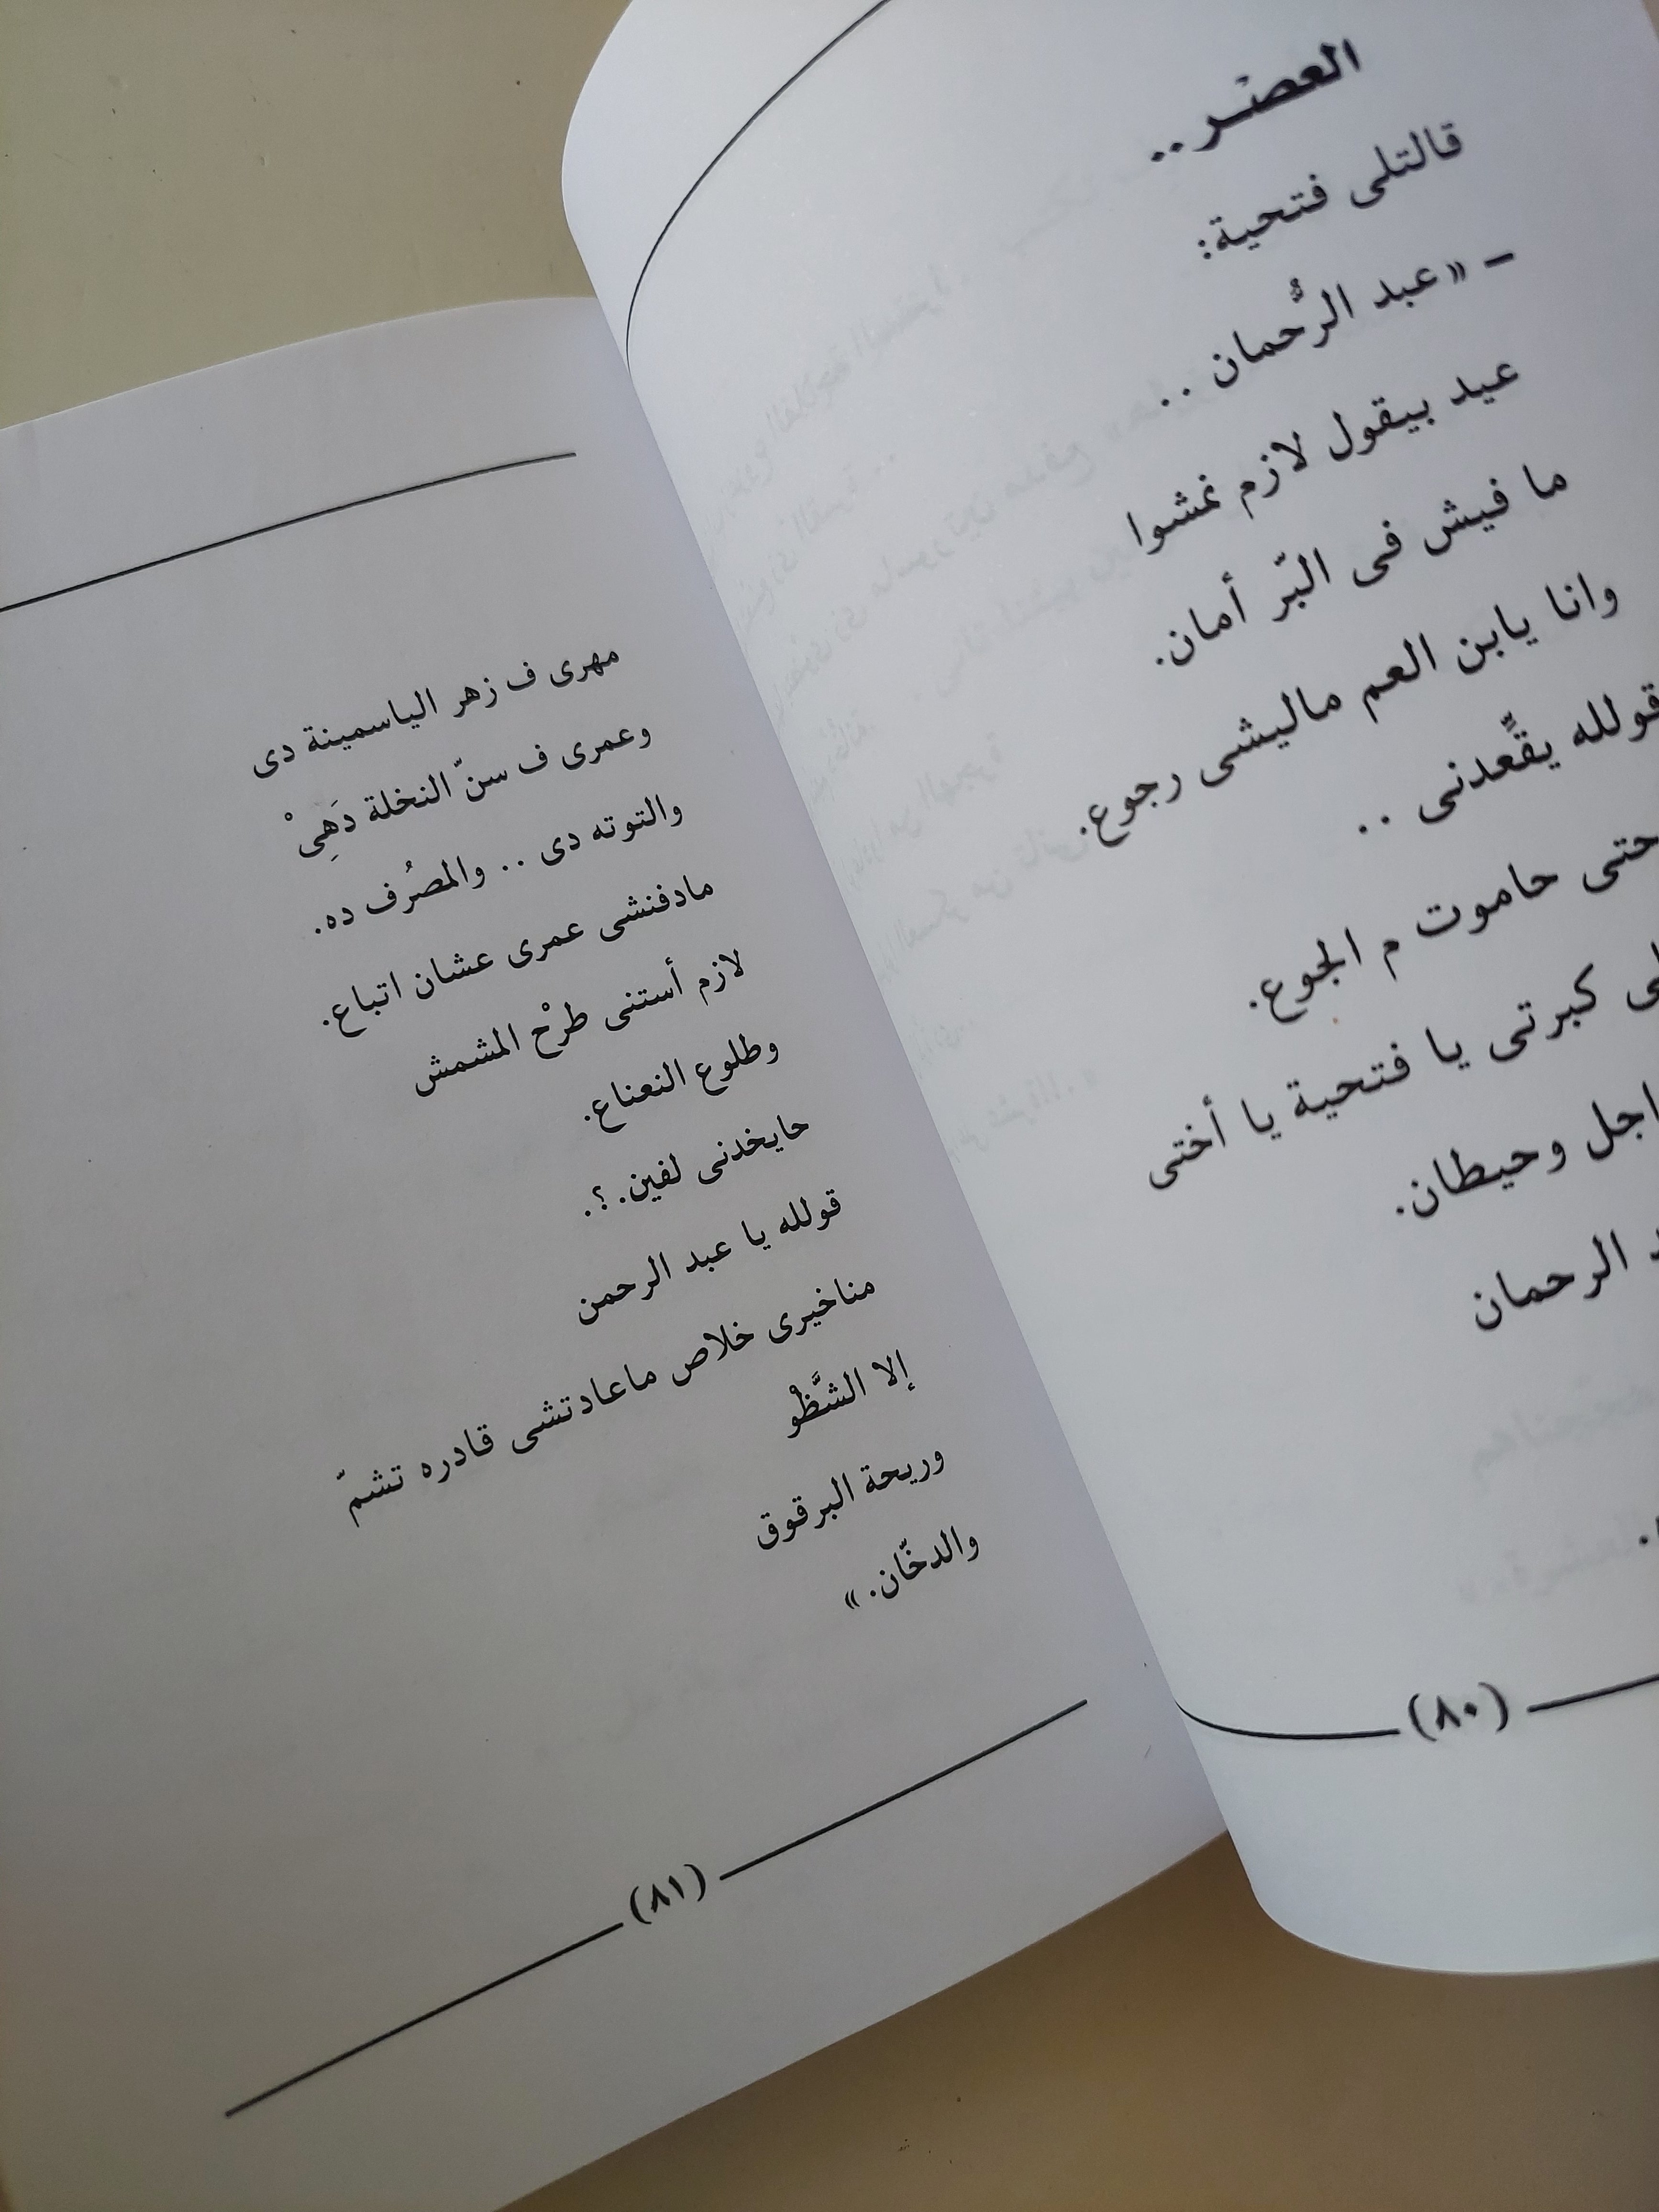 العصْـر..
قالتلى فتحية:
– « عبد الرُّحمان ..
عيد بيقول لازم نمشوا
ما فيش فى البّر أمان.
وانا يابن العم ماليشى رجوع.
قولله يقَّعدنى ..
حتى حاموت م الجوع.
كبرتى يا فتحية يا أختى
وحيطان.
الرحمان
(٨٠)
مهرى ف زهر الياسمينة دى
وعمرى ف سنّ النخلة دَهِىْ
والتوته دى .. والمصرُف ده.
مادفنشى عمرى عشان اتباع.
لازم أستنى طرْح المشمش
وطلوع النعناع.
حايخدنى لفين.؟.
قولله يا عبد الرحمن
مناخيرى خلاص ماعادتشى قادره تشمّ
إلا الشَّظْو
وريحة البرقوق
والدخّان. »
(٨١)